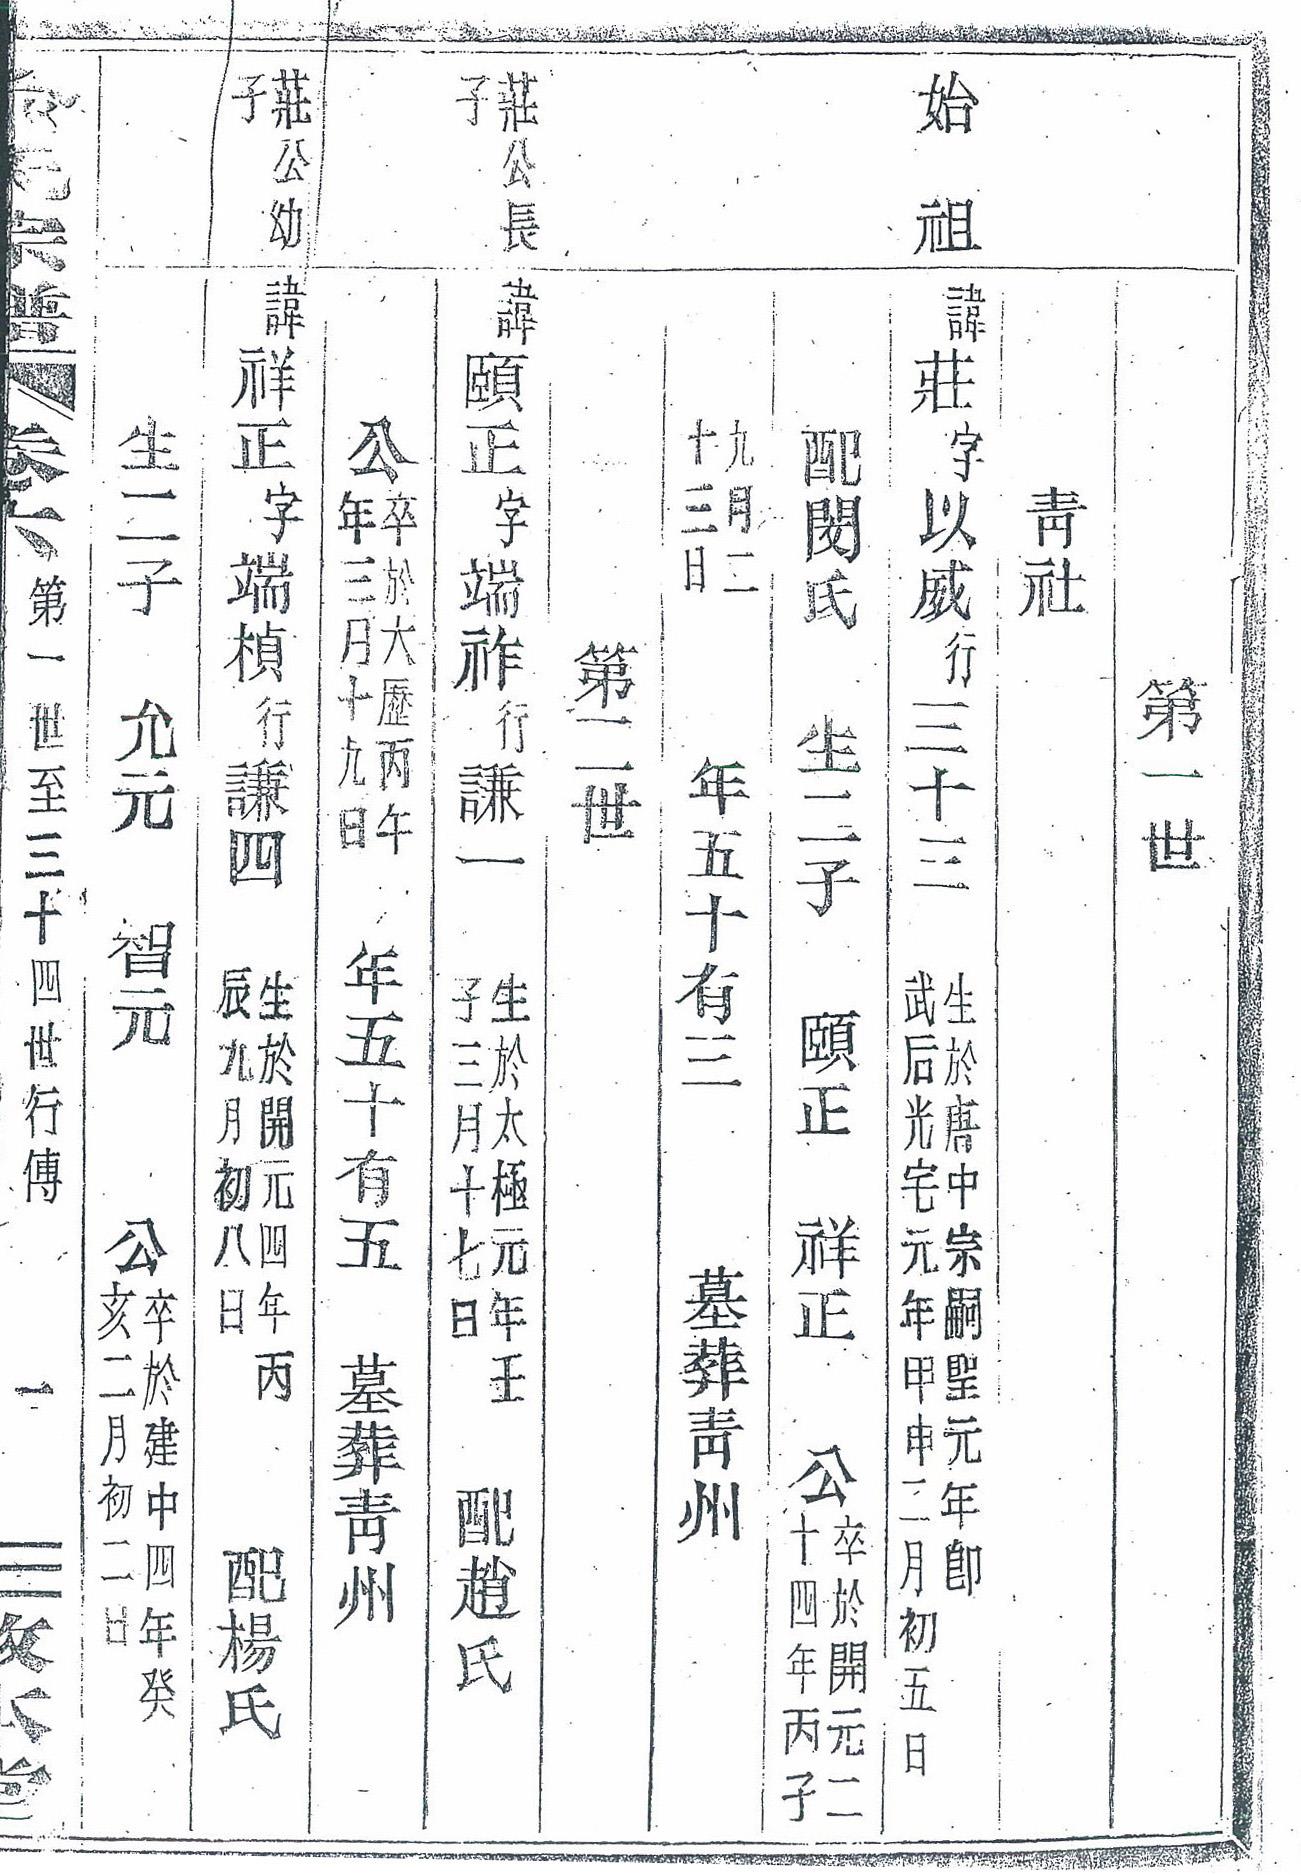 第一世
青社
始祖
諱莊字以威行三十三 生於唐中宗嗣聖元年卽武后光宅元年甲申二月初五日
配閔氏 生二子 頤正 祥正 公卒於開元二十四年丙子
九月二十三日 年五十有三 墓葬青州
第二世
莊公長子
諱頤正字端祚行謙一 生於太極元年壬子三月十七日 配趙氏
公卒於大歷丙午年三月十九日 年五十有五 墓葬青州
莊公幼子
諱祥正字端楨行謙四 生於開元四年丙辰九月初八日 配楊氏
生二子 允元 智元 公卒於建中四年癸亥二月初二日
宗譜 卷六 第一世至三十四世行傳 一